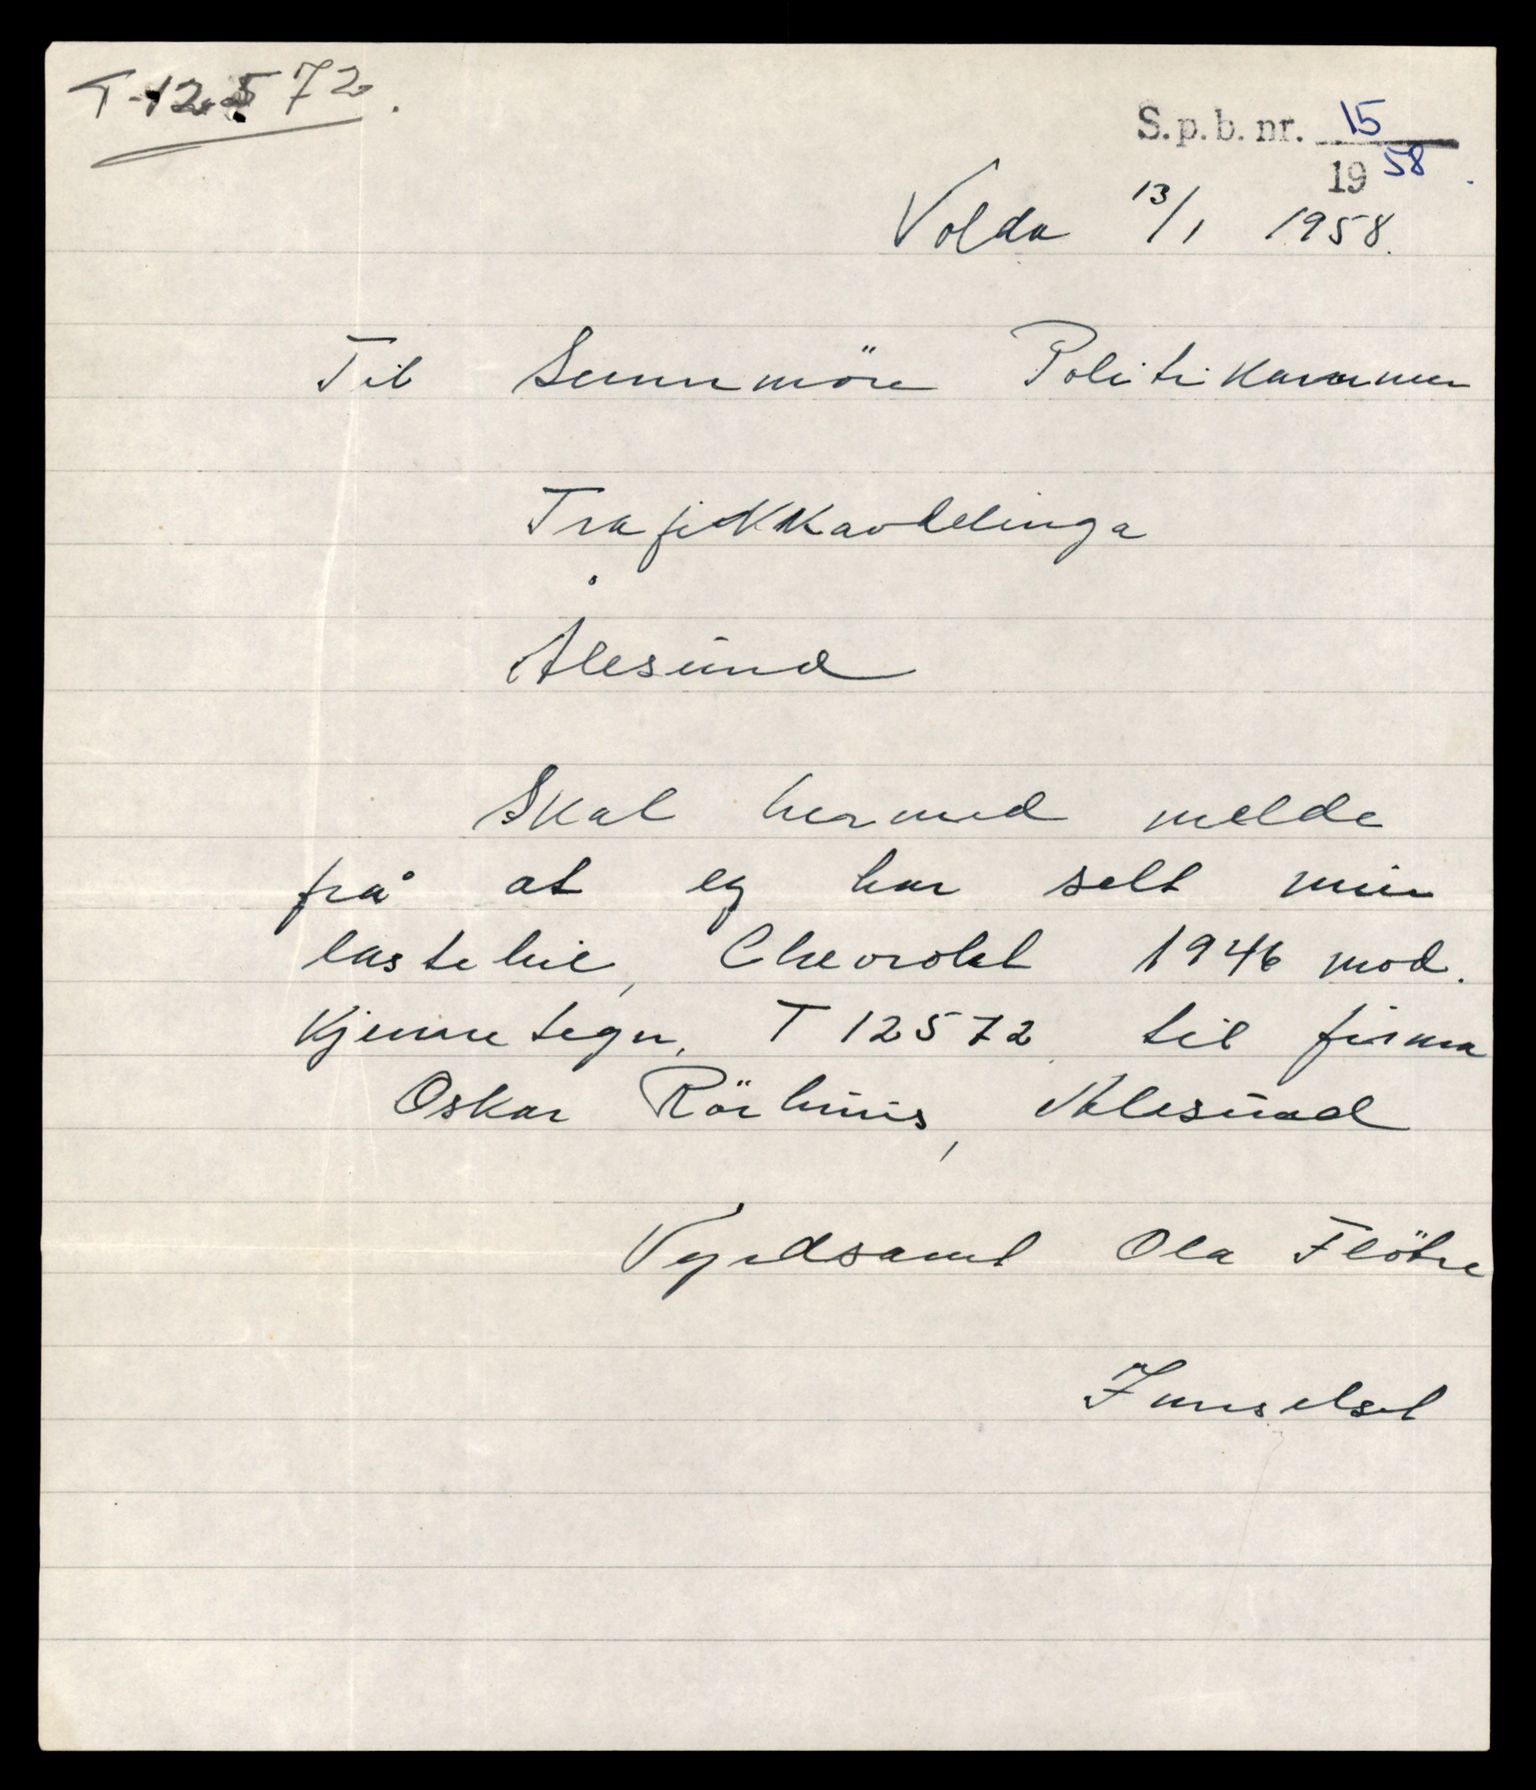 T-12572.
S.p.b. nr. 15
19 58.
Volda 13/1 1958.
Til Sunnmöre Politikammer
Trafikkavdelinga
Ålesund
Skal hermed melde
frå at eg har selt min
lastebil, Chevrolet 1946 mod.
Kjennetegn. T 12572 til firma
Oskar Rörhuus, Ålesund
Vyrdsamt Ola Flötre